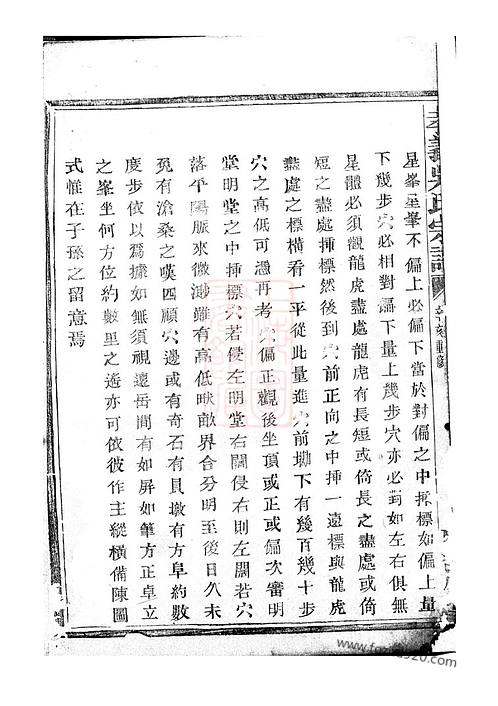 星峯星峯不偏上必偏下當於對偏之中揷標如偏上量
下幾步穴必相對偏下量上幾步穴亦必對如左右俱無
星體必須觀龍虎盡處龍虎有長短或倚長之盡處或倚
短之盡處揷標然後到穴前正向之中揷一遠標與龍虎
盡處之標橫看一平從此量進穴前坳下有幾百幾十步
穴之高低可憑再考穴偏正觀後坐頂或正或偏次審明
堂明堂之中揷標穴若侵左明堂右闊侵右則左闊若穴
落平陽脈來微渺難有高低畎畝界合分明至後日久未
免有滄桑之嘆四顧穴邊或有奇石有貝墩有方阜約數
度步依以爲據如無須視遠岳間有如屏如筆方正卓立
之峯坐何方位約數里之遙亦可依彼作主縱橫備陳圖
式惟在子孫之留意焉